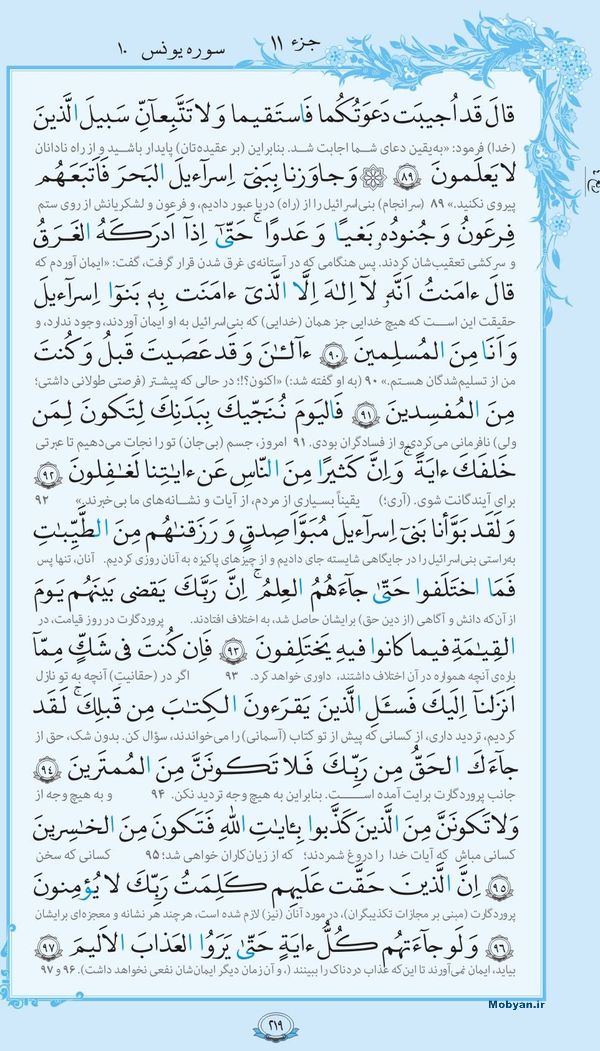 جزء ۱۱
سوره یونس ۱۰
قالَ قَد اُجیبَت دَعوَتُکُما فَاستَقیما وَ لا تَتَّبِعآنِّ سَبیلَ الَّذینَ
(خدا) فرمود: «به‌یقین دعای شما اجابت شد. بنابراین (بر عقیده‌تان) پایدار باشید و از راه نادانان
لا یَعلَمونَ ﴿۸۹﴾ وَ جاوَزنا بِبَنی اِسرآءیلَ البَحرَ فَاَتبَعَهُم
پیروی نکنید.» ۸۹ (سرانجام) بنی‌اسرائیل را از (راه) دریا عبور دادیم، و فرعون و لشکریانش از روی ستم
فِرعَونُ وَ جُنودُهو بَغیًا وَ عَدوًا ۚ حَتّیٰ اِذآ اَدرَکَهُ الغَرَقُ
و سرکشی تعقیب‌شان کردند. پس هنگامی که در آستانه‌ی غرق شدن قرار گرفت، گفت: «ایمان آوردم که
قالَ ءامَنتُ اَنَّهو لآ اِلـٰهَ اِلَّا الَّذیٓ ءامَنَت بِه بَنوٓا اِسرآءیلَ
حقیقت این است که هیچ خدایی جز همان (خدایی) که بنی‌اسرائیل به او ایمان آوردند، وجود ندارد، و
وَ اَنَا مِنَ المُسلِمینَ ﴿۹۰﴾ ءآلـٰنَ وَ قَد عَصَیتَ قَبلُ وَ کُنتَ
من از تسلیم‌شدگان هستم.» ۹۰ (به او گفته شد:) «اکنون؟!؛ در حالی که پیشتر (فرصتی طولانی داشتی؛
مِنَ المُفسِدینَ ﴿۹۱﴾ فَالیَومَ نُنَجّیکَ بِبَدَنِکَ لِتَکونَ لِمَن
ولی) نافرمانی می‌کردی و از فسادگران بودی. ۹۱ امروز، جسم (بی‌جان) تو را نجات می‌دهیم تا عبرتی
خَلفَکَ ءایَةً ۚ وَ اِنَّ کَثیرًا مِنَ النّاسِ عَن ءایـٰتِنا لَغـٰفِلونَ ﴿۹۲﴾
برای آیندگانت شوی. (آری؛) یقیناً بسیاری از مردم، از آیات و نشانه‌های ما بی‌خبرند.» ۹۲
وَ لَقَد بَوَّأنا بَنیٓ اِسرآءیلَ مُبَوَّاَ صِدقٍ وَ رَزَقنـٰهُم مِنَ الطَّیِّبـٰتِ
به‌راستی بنی‌اسرائیل را در جایگاهی شایسته جای دادیم و از چیزهای پاکیزه به آنان روزی کردیم. آنان، تنها پس
فَمَا اختَلَفوا حَتّیٰ جآءَهُمُ العِلمُ ۚ اِنَّ رَبَّکَ یَقضی بَینَهُم یَومَ
از آن‌که دانش و آگاهی (از دین حق) برایشان حاصل شد، به اختلاف افتادند. پروردگارت در روز قیامت، در
القِیـٰمَةِ فیما کانوا فیهِ یَختَلِفونَ ﴿۹۳﴾ فَاِن کُنتَ فی شَکٍّ مِمّآ
باره‌ی آنچه همواره در آن اختلاف داشتند، داوری خواهد کرد. ۹۳ اگر در (حقانیتِ) آنچه به تو نازل
اَنزَلنآ اِلَیکَ فَسـَٔلِ الَّذینَ یَقرَءونَ الکِتـٰبَ مِن قَبلِکَ ۚ لَقَد
کردیم، تردید داری، از کسانی که پیش از تو کتاب (آسمانی) را می‌خواندند، سؤال کن. بدون شک، حق از
جآءَکَ الحَقُّ مِن رَبِّکَ فَلا تَکونَنَّ مِنَ المُمتَرینَ ﴿۹۴﴾
جانب پروردگارت برایت آمده است. بنابراین به هیچ وجه تردید نکن. ۹۴ و به هیچ وجه از
وَ لا تَکونَنَّ مِنَ الَّذینَ کَذَّبوا بِـٔایـٰتِ اللهِ فَتَکونَ مِنَ الخـٰسِرینَ
کسانی مباش که آیات خدا را دروغ شمردند؛ که از زیان‌کاران خواهی شد؛ ۹۵ کسانی که سخن
﴿۹۵﴾ اِنَّ الَّذینَ حَقَّت عَلَیهِم کَلِمَتُ رَبِّکَ لا یُؤمِنونَ
پروردگارت (مبنی بر مجازات تکذیبگران)، در مورد آنان (نیز) لازم شده است، هرچند هر نشانه و معجزه‌ای برایشان
﴿۹۶﴾ وَ لَو جآءَتهُم کُلُّ ءایَةٍ حَتّیٰ یَرَوُا العَذابَ الاَلیمَ ﴿۹۷﴾
بیاید، ایمان نمی‌آورند تا این‌که عذاب دردناک را ببینند (، و آن زمان دیگر ایمان‌شان نفعی نخواهد داشت). ۹۶ و ۹۷
Mobyan.ir
۲۱۹